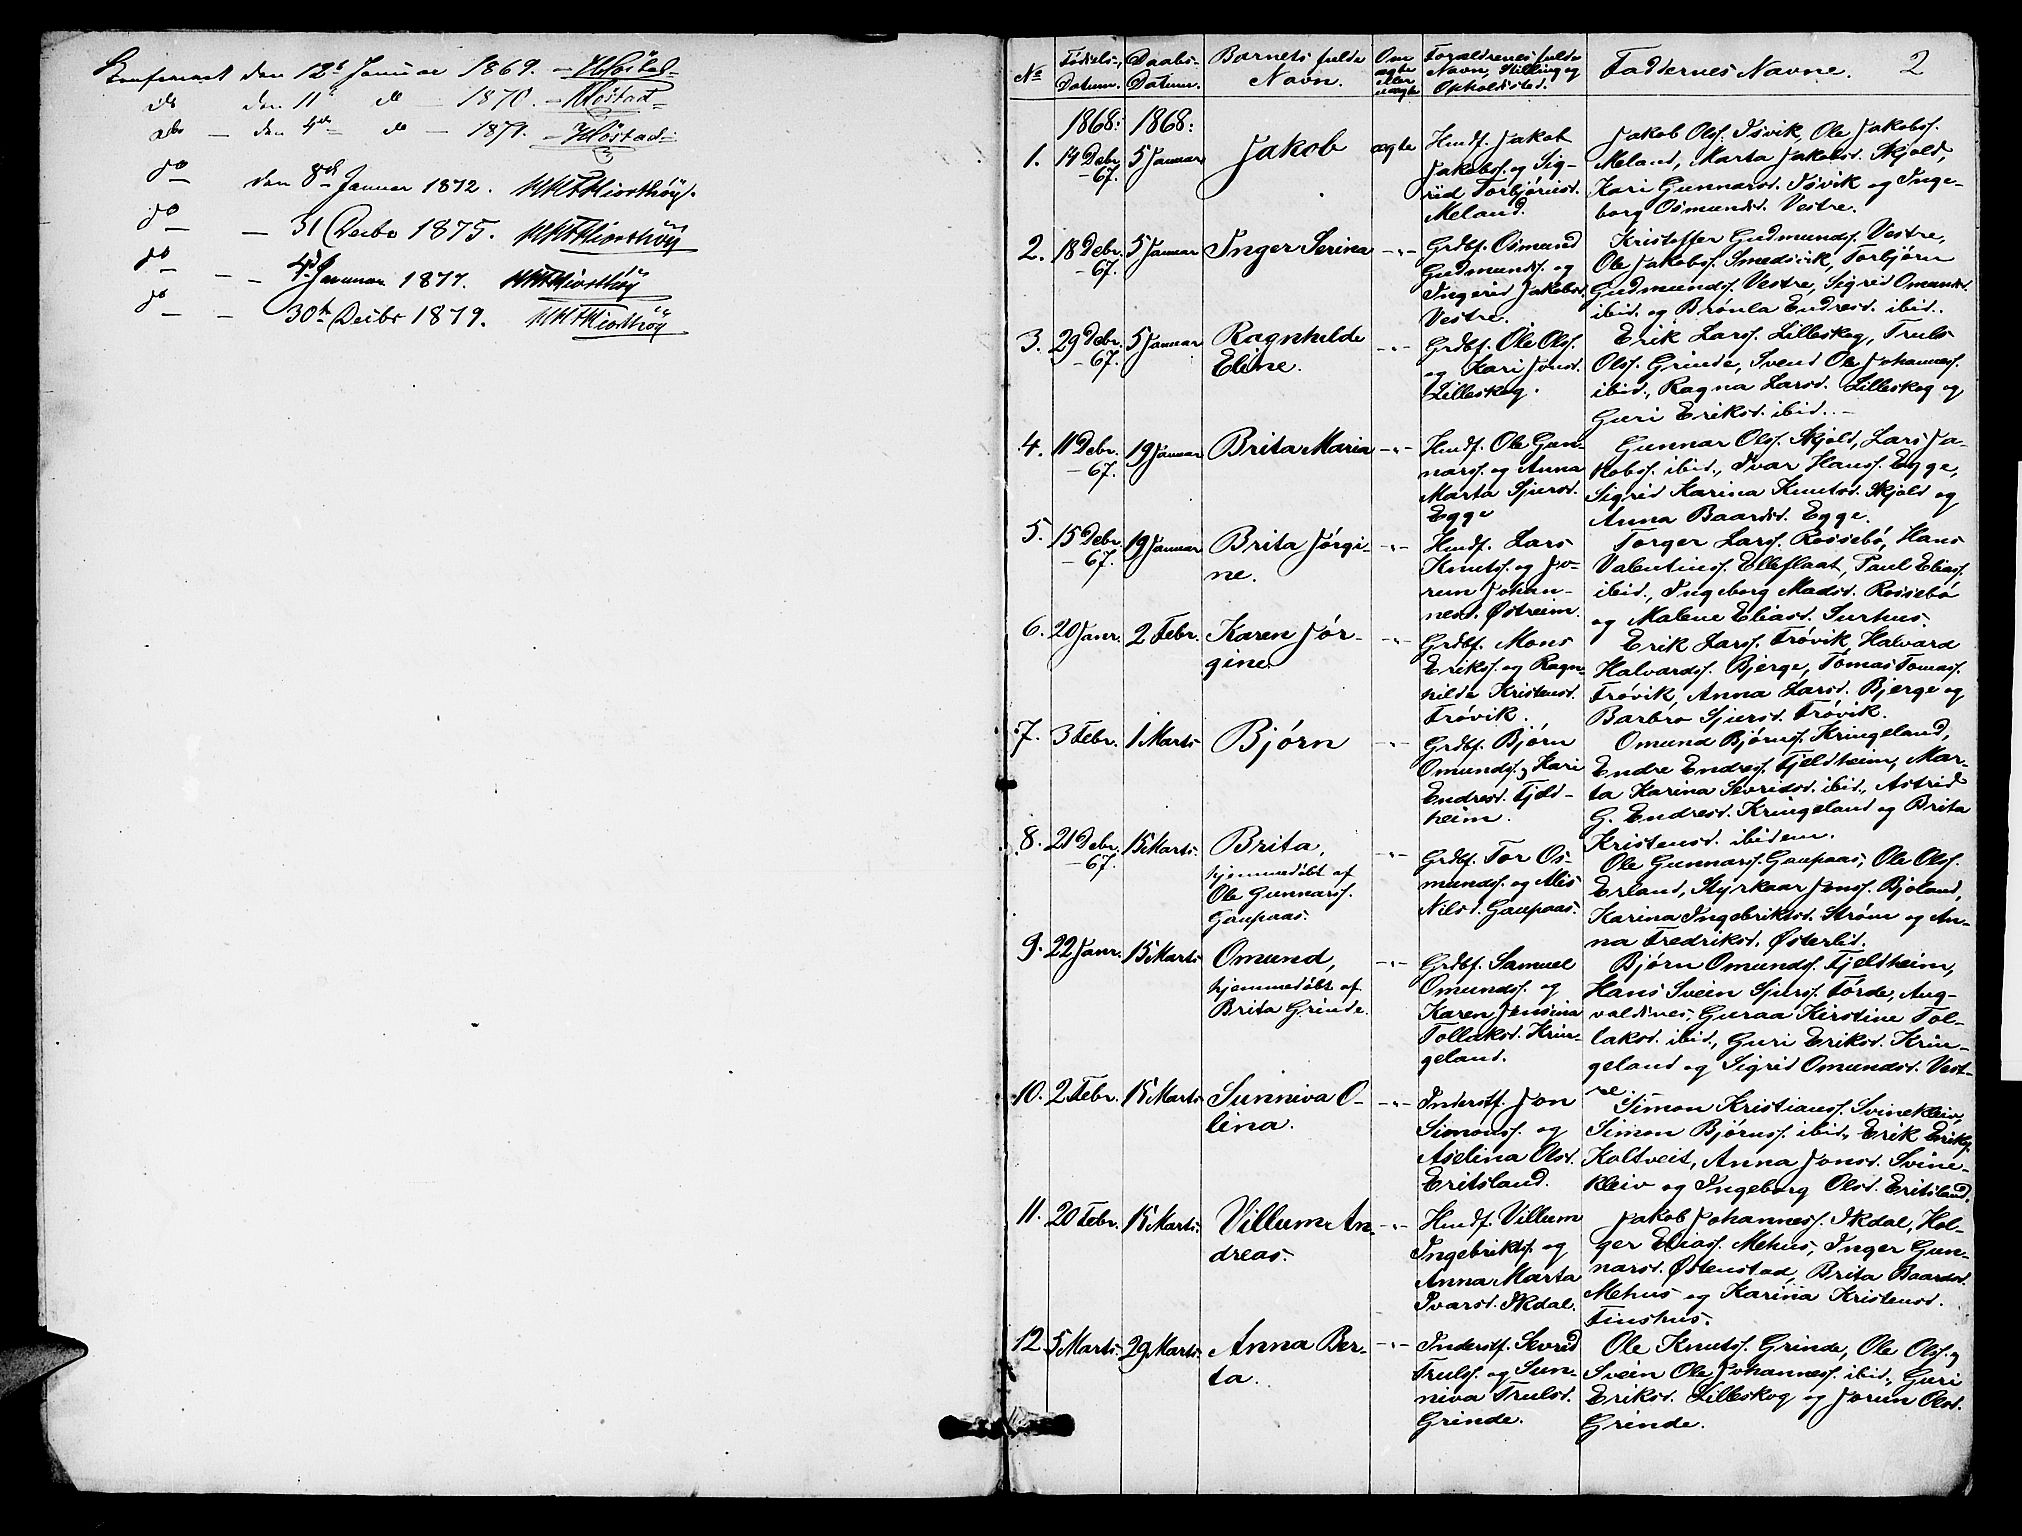 Confereret den 12te Januar 1869. – Høstad
do den 11te do – 1870. – Høstad
do – den 4de do – 1871. – Høstad
do den 8de Januar 1872. Hiorthöy.
do – 31 Decbr 1875. Hiorthöy
do – 4de Januar 1877. Hiorthöy
do – 30te Decbr 1879. Hiorthöy
2
No
Fødsels-Datum.
Daabs-Datum.
Barnets fulde Navn.
Om ægte eller uægte
Forældrenes fulde Navn, Stilling og Opholdssted.
Faddernes Navne.
1868: 1868:
1. 14 Debr. –67. 5 Januar Jakob ægte
Husmf. Jakob
Jakobs. og Sig-
rid Torbjørnsd.
Meland.
Jakob Ols. Isvik, Ole Jakobs.
Meland, Marta Jakobsd. Skjold,
Kari Gunnarsd. Isvik og Inge-
borg Osmundsd. Vestre.
2. 18 Debr. –67. 5 Januar Inger Serina –"–
Grdbf. Osmund
Gudmunds. og
Ingerid Jakobsd.
Vestre.
Kristoffer Gudmunds. Vestre,
Ole Jakobs. Smedsvik, Torbjørn
Gudmunds. Vestre, Sigrid Omundsd.
ibid. og Brønla Endresd. ibid.
3. 29 Debr. –67. 5 Januar Ragnhilde
Eline. –"–
Grdbf. Ole Ols.
og Kari Jonsd.
Lilleskog.
Erik Lars. Lilleskog, Truls
Ols. Grinde, Svend Ole Johannes.
ibid., Ragna Larsd. Lilleskog og
Guri Eriksd. ibid. –
4. 11 Debr. –67. 19 Januar Brita Maria –"–
Husmf. Ole Gun-
nars. og Anna
Marta Sjursd.
Egge
Gunnar Ols. Skjold, Lars Ja-
kobs. ibid., Ivar Hans. Egge,
Sigrid Karina Knutsd. Skjold og
Anna Baardsd. Egge.
5. 15 Debr. –67. 19 Januar Brita Jørgi-
ne. –"–
Husmf. Lars
Knuts. og Jo-
run Johan-
nesd. Østreim.
Torger Lars. Rossebø, Hans
Valentins. Elleflaat, Paul Elias.
ibid., Ingeborg Madsd. Rossebø
og Malene Eliasd. Surhus.
6. 20 Janr. 2 Febr. Karen Jør-
gine. –"–
Grdbf. Mons
Eriks. og Ragn-
hilde Kristensd.
Frøvik.
Erik Lars. Frøvik, Halvard
Halvards. Bjerge, Tomas Tomas.
Frøvik, Anna Larsd. Bjerge og
Barbro Sjursd. Frøvik.
7. 3 Febr. 1 Marts Bjørn –"–
Grdbf. Bjørn
Omunds. og Kari
Endresd. Fjeld-
heim.
Omund Bjørns. Kringeland,
Endre Endres. Fjeldheim, Mar-
ta Karina Sevridsd. ibid., Astrid
G. Endresd. Kringeland og Brita
Kristensd. ibidem.
8. 21 Debr. –67. 15 Marts. Brita,
hjemmedøbt af
Ole Gunnars.
Gaupaas. –"–
Grdbf. Tor Os-
munds. og Alis
Nilsd. Gaupaas.
Ole Gunnars. Gaupaas, Ole Ols.
Erland, Styrkaar Jons. Bjoland,
Karina Ingebriktsd. Strøm og An-
na Fredriksd. Østerlid.
9. 22 Janr. 15 Marts Omund,
hjemmedøbt af
Brita Grinde. –"–
Grdbf. Samuel
Omunds. og
Karen Jensina
Tollaksd. Krin-
geland.
Bjørn Omunds. Fjeldheim,
Hans Svein Sjurs. Førde, Aug-
valdsnes, Guraa Kirstine Tol-
laksd. ibid., Guri Eriksd. Krin-
geland og Sigrid Omundsd. Vest-
re.
10. 2 Febr. 15 Marts Sunniva O-
lina. –"–
Inderstf. Jon
Simons. og
Aselina Olsd.
Eritsland.
Simon Kristians. Svinekleiv,
Simon Bjørns. ibid., Erik Eriks.
Holtveit, Anna Jonsd. Svine-
kleiv og Ingeborg Olsd. Eritsland.
11. 20 Febr. 15 Marts. Villum An-
dreas. –"–
Husmf. Villum
Ingebrikts. og
Anna Marta
Ivarsd. Ikdal.
Jakob Johannes. Ikdal, Hol-
ger Elias. Mehus, Inger Gun-
narsd. Østenstad, Brita Baardsd.
Mehus og Karina Kristensd.
Finshus.
12. 5 Marts. 29 Marts. Anna Ber-
ta. –"–
Inderstf. Sevrid
Truls. og Sun-
niva Trulsd.
Grinde.
Ole Knuts. Grinde, Ole Ols. og
Svein Ole Johannes. ibid., Guri
Eriksd. Lilleskog og Jorun Olsd.
Grinde.